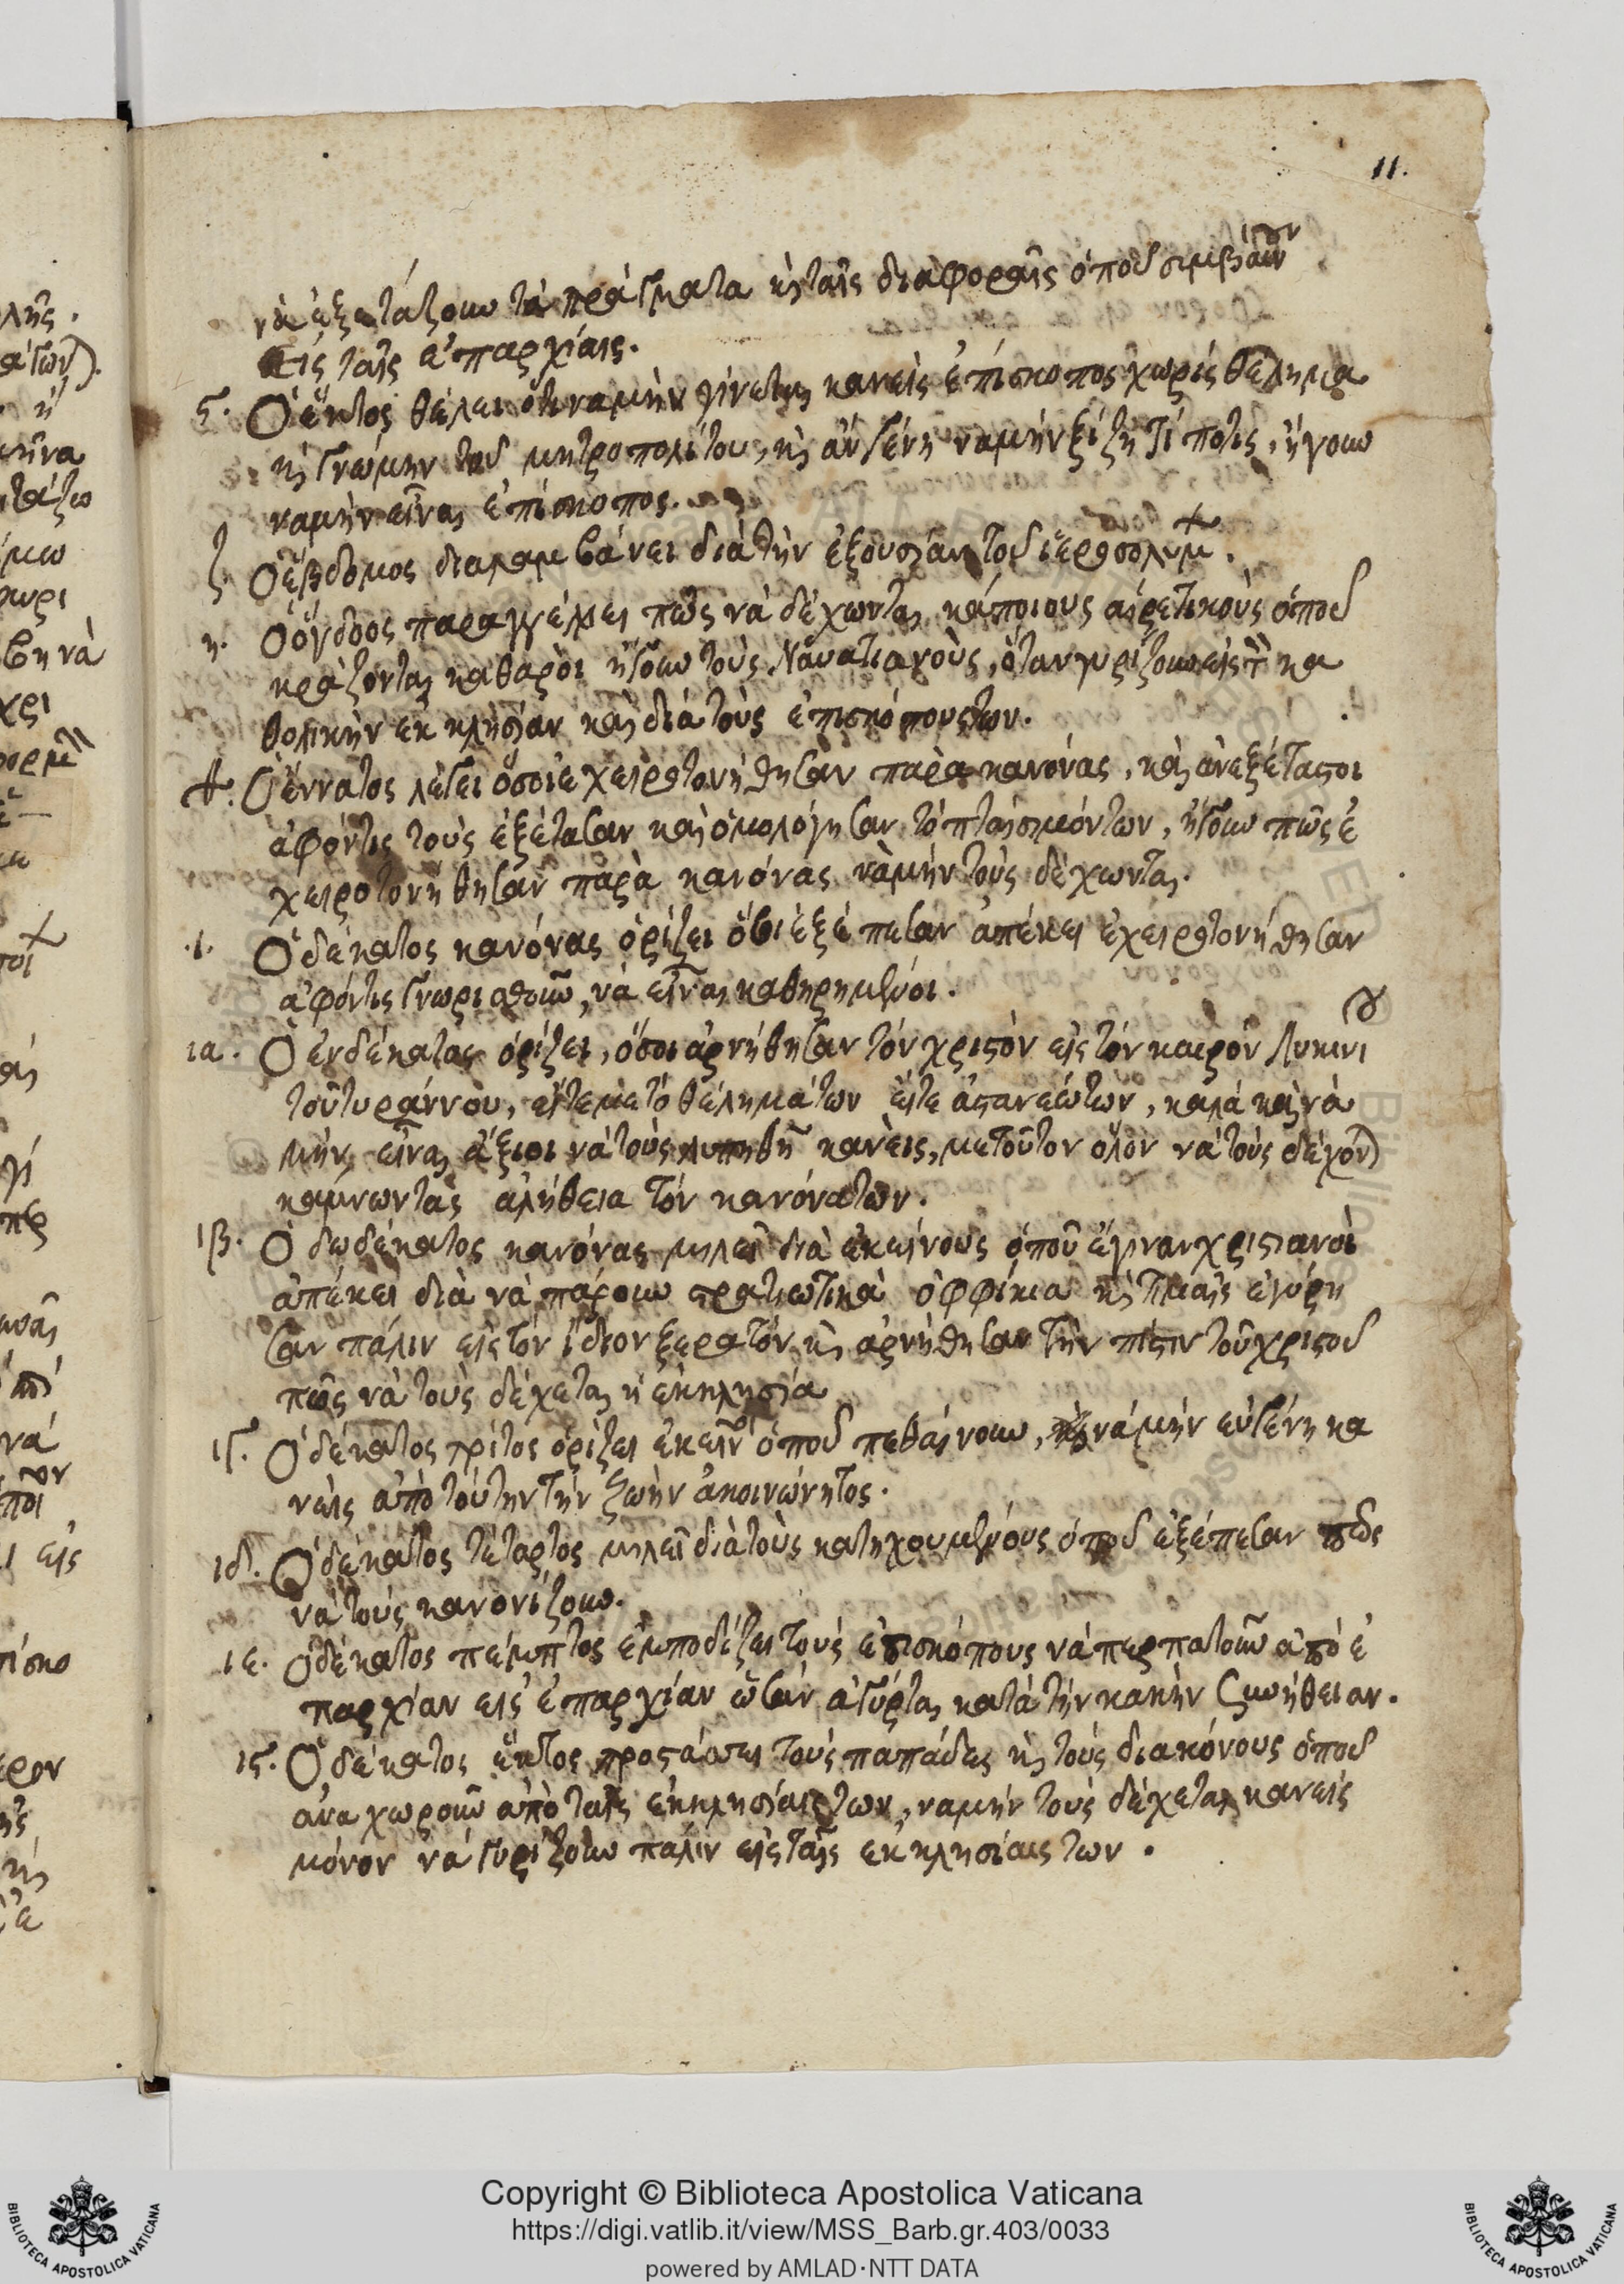 11.
νὰ ἐξετάζουν τὰ πράγματα κὴ ταῖς διαφοραῖς ὁποῦ συμβαίνουν
εἰς ταῖς ἐπαρχίαις.
ϛ. Ὁ ἕκτος θέλει ὅτι νὰ μὴν γίνεται κανεὶς ἐπίσκοπος χωρὶς θέλημα
κὴ γνώμην τοῦ μητροπολίτου, κὴ ἂν γένη νὰ μὴν ξίζη τίποτις, ἤγουν
νὰ μὴν εἶναι ἐπίσκοπος.
ζ. Ὁ ἕβδομος διαλαμβάνει διὰ τὴν ἐξουσίαν τοῦ ἱεροσολύμ.
η. Ὁ ὄγδοος παραγγέλλει πῶς νὰ δέχωνται κάποιους αἱρετικοὺς ὁποῦ
κράζονται καθαροὶ ἤγουν τοὺς Ναυατιανοὺς, ὅταν γυρίζουν εἰς τὴν κα
θολικὴν ἐκκλησίαν καὶ διὰ τοὺς ἐπισκόπους των.
θ. Ὁ ἔννατος λέγει ὅσοι ἐχειροτονήθησαν παρὰ κανόνας, καὶ ἀνεξέταστοι
ἀφόντις τοὺς ἐξέτασαν καὶ ὁμολόγησαν τὸ πταίσιμόν των, ἤγουν πῶς ἐ
χειροτονήθησαν παρὰ κανόνας νὰ μὴν τοὺς δέχωνται.
ι. Ὁ δέκατος κανόνας ὁρίζει ὅσοι ἐξέπεσαν ἀπέκει ἐχειροτονήθησαν
ἀφόντις γνωρισθοῦν, νὰ εἶναι καθηρημένοι.
ια. Ὁ ἑνδέκατος ὁρίζει, ὅσοι ἀρνήθησαν τὸν χριστὸν εἰς τὸν καιρὸν Λυκινίου
τοῦ τυράννου, εἴτε μὲ τὸ θέλημά των εἴτε ἀστανεώς των, καλὰ καὶ νὰ
μὴν εἶναι ἄξιοι νὰ τοὺς λυπηθῆ κανεὶς, με τοῦτον ὅλον νὰ τοὺς δέχον)
κάμνωντας ἀλήθεια τὸν κανόνα των.
ιβ. Ὁ δωδέκατος κανόνας μιλεῖ διὰ ἐκείνους ὁποῦ ἔγιναν χριστιανοὶ
ἀπέκει διὰ νὰ πάρουν στρατιωτικὰ ὀφφίκια κὴ τιμαῖς ἐγύρη
σαν πάλιν εἰς τὸν ἴδιον ξερατόν, κὴ ἀρνήθησαν τὴν πίστιν τοῦ χριστοῦ
πῶς νὰ τοὺς δέχεται ἡ ἐκκλησία
ιγ. Ὁ δέκατος τρίτος ὁρίζει ἐκεῖν ὁποῦ πεθαίνουν, νὰ μὴν εὐγένη κα
νεὶς ἀπὸ τούτην τὴν ζωὴν ἀκοινώνητος.
ιδ. Ὁ δέκατος τέταρτος μιλεῖ διὰ τοὺς κατηχουμένους ὁποῦ ἐξέπεσαν πῶς
νὰ τοὺς κανονίζουν.
ιε. Ὁ δέκατος πέμπτος ἐμποδίζει τοὺς ἐπισκόπους νὰ περπατοῦν ἀπὸ ἐ
παρχίαν εἰς ἐπαρχίαν ὡσὰν ἀγύρται κατὰ τὴν κακὴν συνήθειαν.
ιϛ. Ὁ δέκατος ἕκτος προστάσσει τοὺς παπάδες κὴ τοὺς διακόνους ὁποῦ
ἀναχωροῦν ἀπὸ ταῖς ἐκκλησίαις των, νὰ μὴν τοὺς δέχεται κανεὶς
μόνον νὰ γυρίζουν πάλιν εἰς ταῖς ἐκκλησίαις των.
Copyright © Biblioteca Apostolica Vaticana
https://digi.vatlib.it/view/MSS_Barb.gr.403/0033
powered by AMLAD·NTT DATA
BIBLIOTECA APOSTOLICA VATICANA
BIBLIOTECA APOSTOLICA VATICANA